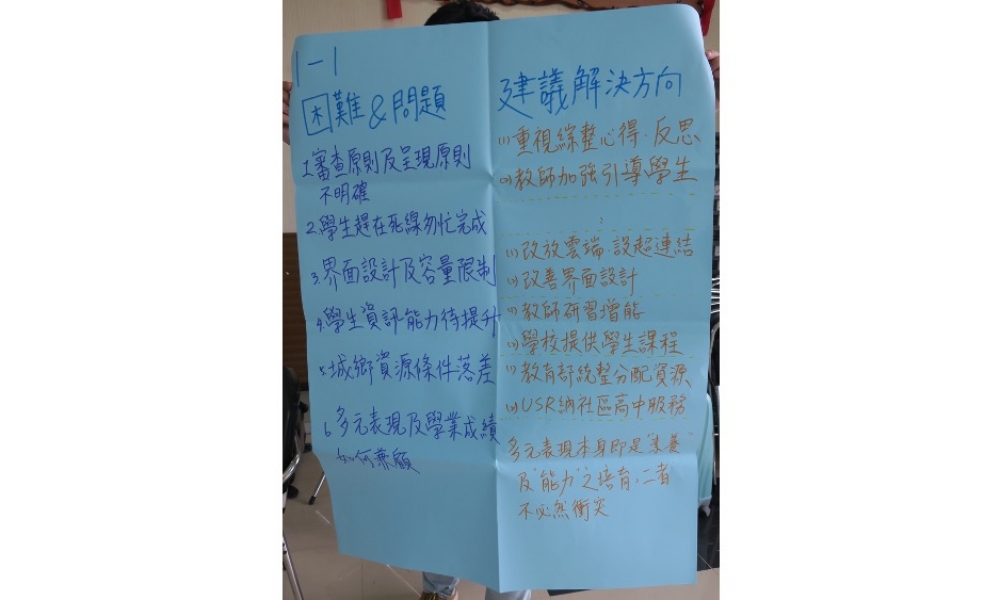 1-1
困難&問題
1.審查原則及呈現原則
不明確
2.學生趕在死線匆忙完成
3.界面設計及容量限制
4.學生資訊能力待提升
5.城鄉資源條件落差
6.多元表現及學業成績
如何兼顧
建議解決方向
(1)重視綜整心得、反思
(2)教師加強引導學生
(1)改放雲端、設超連結
(2)改善界面設計
(1)教師研習增能
(2)學校提供學生課程
(1)教育部統整分配資源
(2)USR納社區高中服務
多元表現本身即是"素養"
及"能力"之培育,二者
不必然衝突